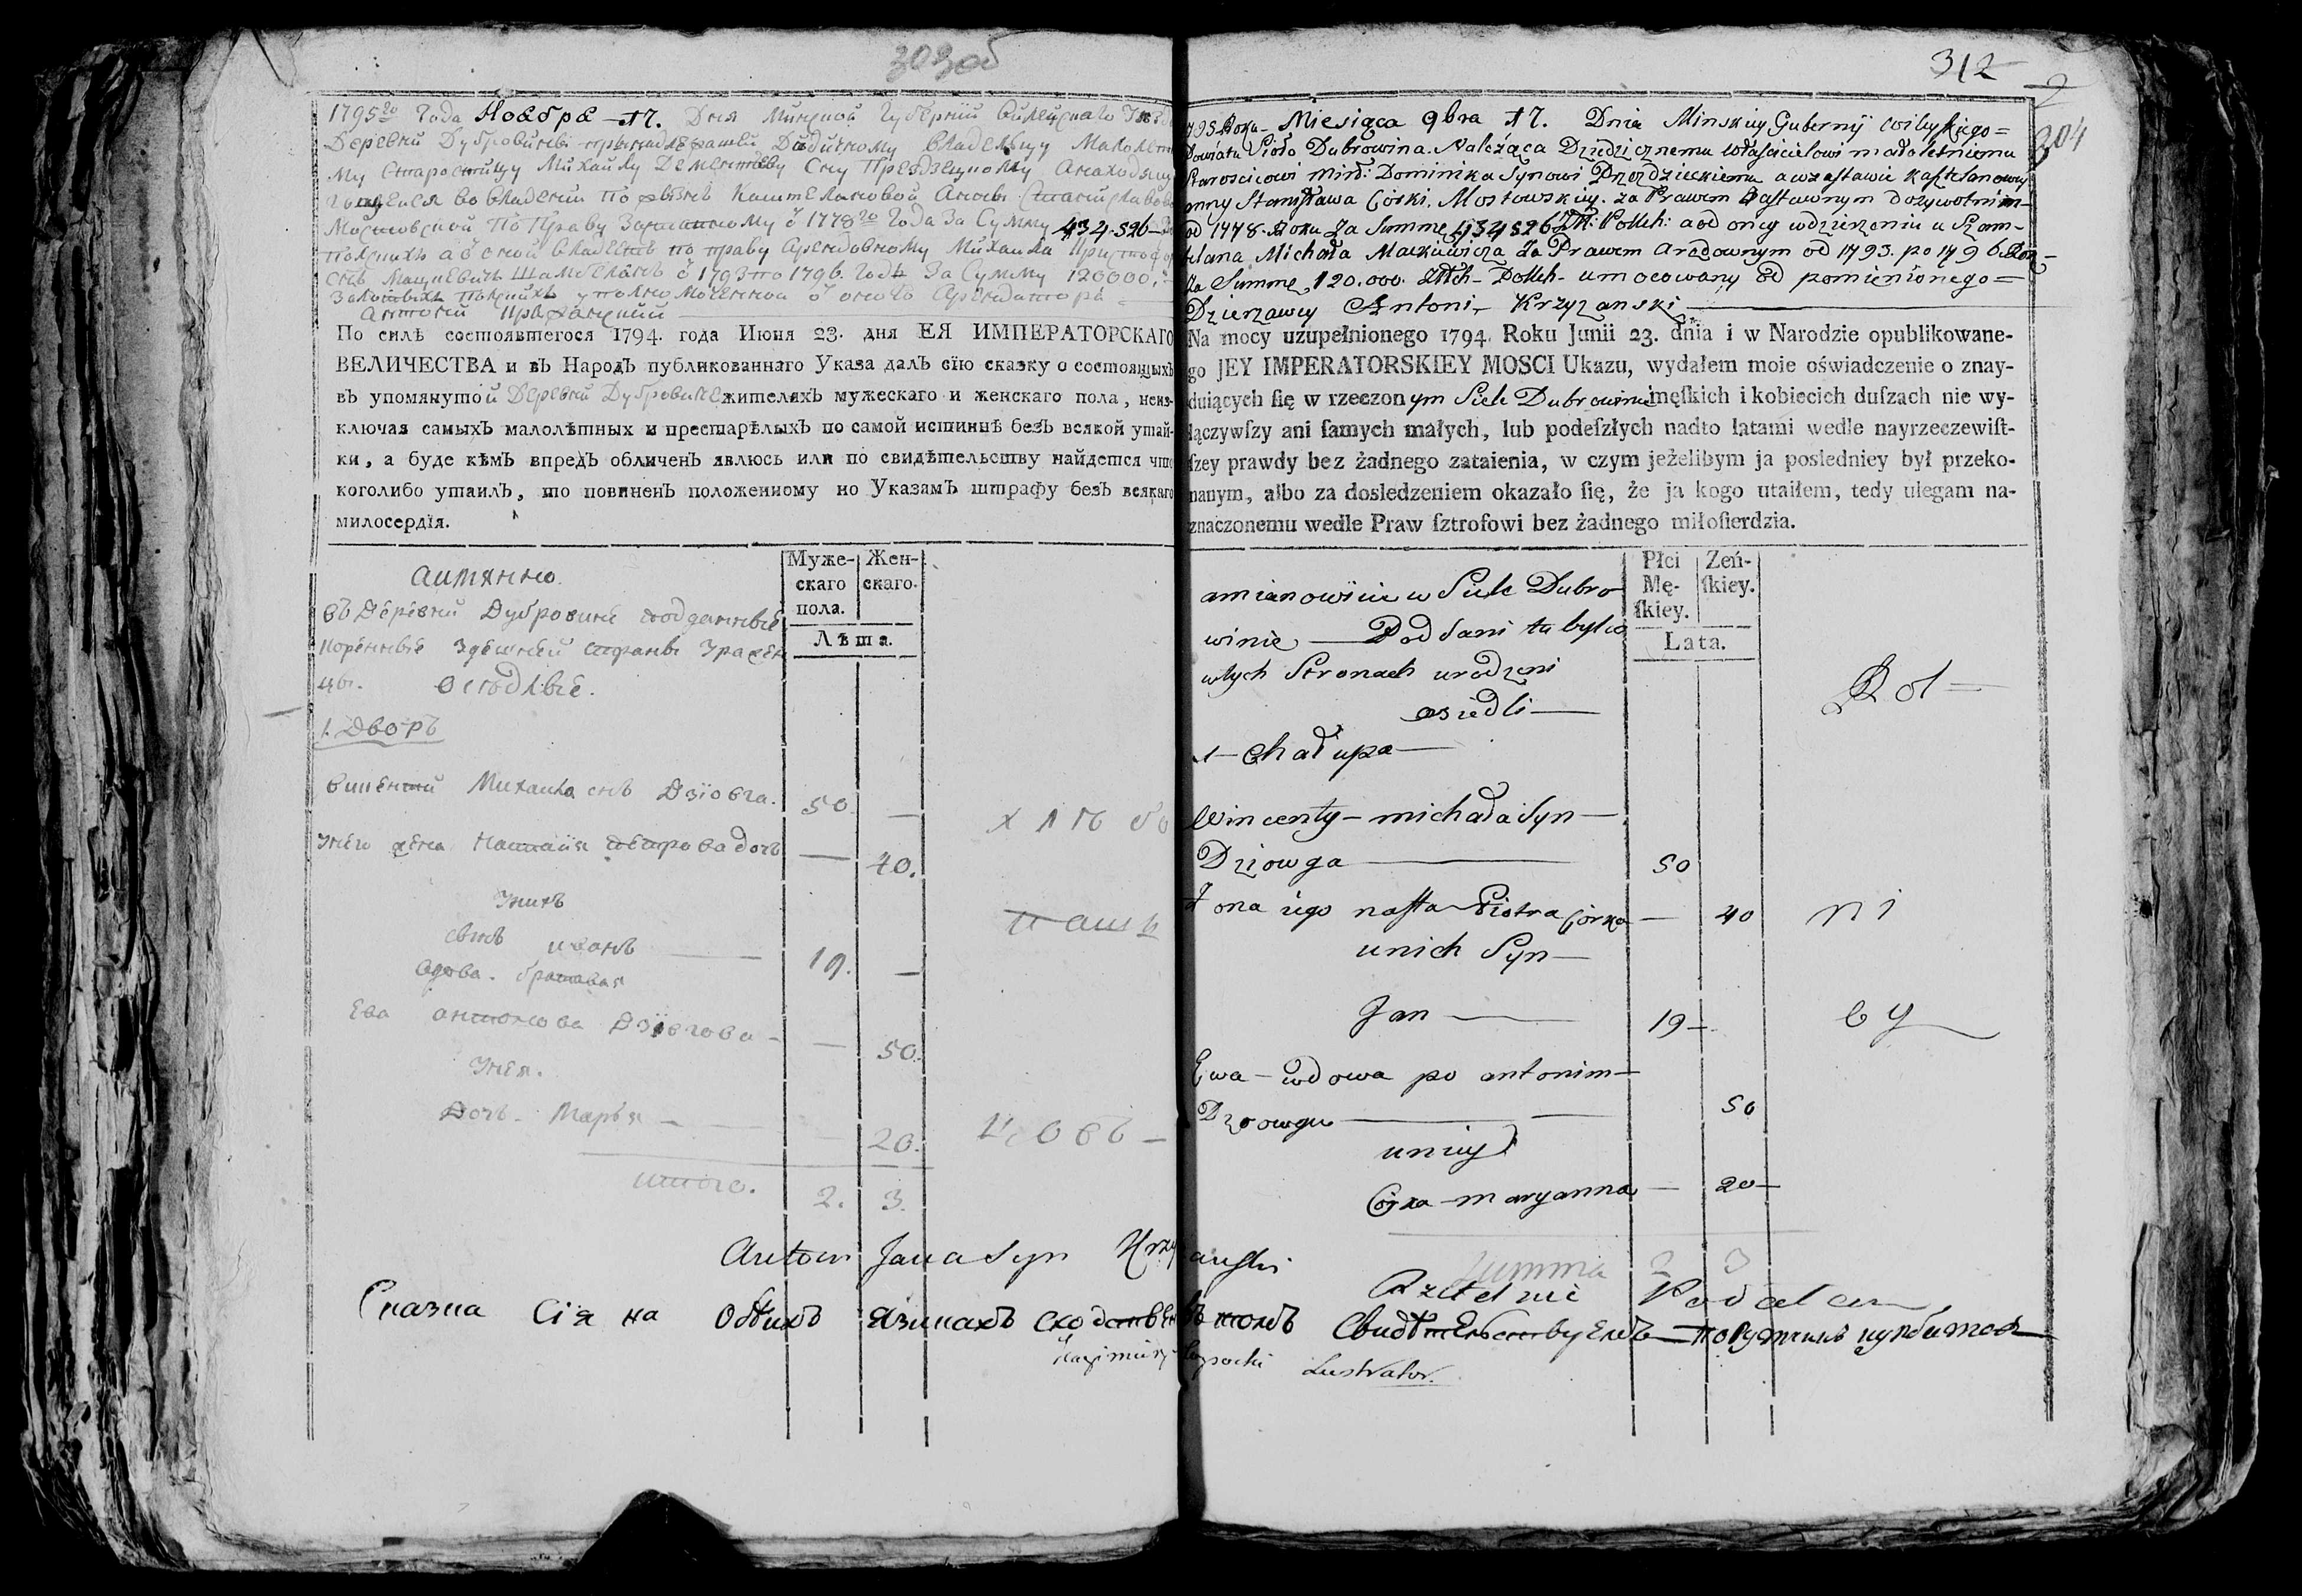 303об
1795го Года Ноября 17. Дня Минской Губернии Вилейскаго
Деревни Дубровины принадлежащей Дедичному владельцу Малолет
му Старостицу Михайлу Дементиеву Сну Прездецкому Анаходящ
во владении Каштеляновой Анны Станиславовой
Мостовской По Праву Заставному с 1778го Года За Сумму 434.526
польских а в оной владеет по праву Арендовному Михаила
Мацкевич Шамбелян с 1793 по 1796. Года За Сумму 120000.
Золотых польских уполномоченной от оного Арендатора
Антоний
По силѣ состоявшегося 1794. года Июня 23. дня ЕЯ ИМПЕРАТОРСКАГО
ВЕЛИЧЕСТВА и въ Народъ публикованнаго Указа далъ сїю сказку о состоящыхъ
въ упомянутой Деревни Дубровине жителяхъ мужескаго и женскаго пола, неиз-
ключая самыхъ малолѣтныхъ и престарѣлыхъ по самой истиннѣ безъ всякой утай-
ки, а буде кѣмъ впредъ обличенъ явлюсь или по свидѣтельству найдется что
коголибо утаилъ, то повиненъ положенному по Указамъ штрафу безъ всякаго
милосердїя.
Муже-
скаго
пола.
Жен-
скаго.
Лѣта.
а имянно.
въ Деревни Дубровине подданные
коренные здешней стороны
оседлые.
1. Дворъ
Викентий Михаила снъ Дзіовга. 50. —
жена Настасия петрова дочь — 40.
У них
сынъ иванъ — 19. —
вдова. братовая
Ева антонова Дзіовгова — — 50.
У нея.
Дочь. Марья — 20.
итого. 2. 3.
хлѣбо
паш
цовъ —
312
304
1795 Roku Miesiąca 9bra 17. Dnia Minskiey Gubernij Wileyskiego =
Powiatu Sioło Dubrowina Należąca Dziedzicznemu Właścicielowi małoletniemu
Staroscicowi Dominika Synowi Przezdzieckiemu a w zastawie Kasztelanowey
Anny Stanisława Corki, Mostowskiey. za Prawem Zastawnym dożywotnim
od 1778. Roku Za Summę 434526 Złł: Polsch: a od oney w dzierżeniu u Szam-
belana Michała Mackiewicza Za Prawem Arędownym od 1793. po 1796
Za Summę 120.000. Złtch. Polsch. umocowany od pomienionego =
Dzierżawcy Antoni Krzyżanski
Na mocy uzupełnionego 1794. Roku Junii 23. dnia i w Narodzie opublikowane-
go JEY IMPERATORSKIEY MOSCI Ukazu, wydałem moie oświadczenie o znay-
duiących ſię w rzeczonym Siele Dubrowinie męſkich i kobiecich duſzach nie wy-
łączywſzy ani ſamych małych, lub podeſzłych nadto latami wedle nayrzeczewiſt-
ſzey prawdy bez żadnego zataienia, w czym jeżelibym ja posledniey był przeko-
nanym, albo za dosledzeniem okazało ſię, że ja kogo utaiłem, tedy ulegam na-
znaczonemu wedle Praw ſztrofowi bez żadnego miłoſierdzia.
Płci
Mę-
ſkiey.
Zeń-
ſkiey.
Lata.
a mianowicie w Siele Dubro
winie — Poddani tu bylco
w tych Stronach urodzeni
osiedli —
1 — Chałupa —
Wincenty — michała Syn —
Dziowga — 50
Żona iego nasta Piotra Corka — 40
u nich Syn —
Jan — 19 —
Ewa — wdowa po antonim —
Dziowgu — 50
u niey
Corka — maryanna — 20 —
Summa 2 3
Rol =
ni
cy
Antoni Jana Syn Krzyżanski
Rzetelnie Podałem
Сказка Сія на обоихъ языкахъ сходственъ въ томъ Свидѣтельствуетъ порутчикъ
Kazimierz Wysocki Lustrator.